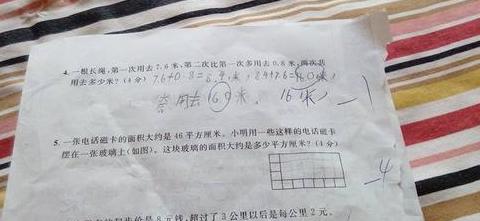 4.一根长绳,第一次用去7.6米,第二次比第一次多用去0.8米,两次共
用去多少米?(4分) 7.6+0.8=8.4(米) 8.4+7.6=16.0(米)
答:用去16.0米. 16(米)
5.一张电话磁卡的面积大约是46平方厘米。小明用一些这样的电话磁卡
摆在一张玻璃上(如图)。这块玻璃的面积大约是多少平方厘米?(4分)
-4
步价是8元钱,超过了3公里以后是每公里2元。